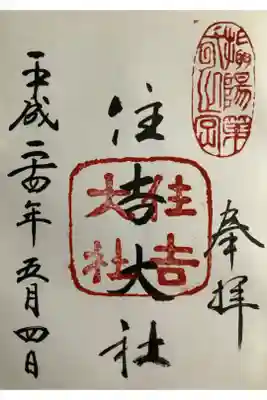 陽第
奉拝
住吉大社
住吉
大社
平成二四年五月四日